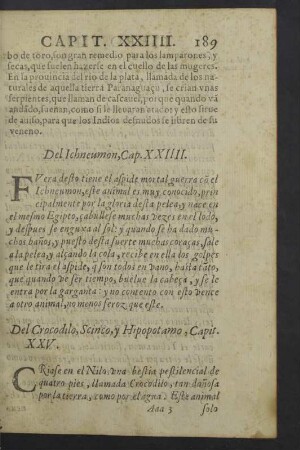 CAPIT. XXIIII. 189
bo de toro, son gran remedio para los lamparones, y
secas, que suelen hazerse en el cuello de las mugeres.
En la prouincia del rio de la plata, llamada de los na-
turales de aquella tierra Paranaguaçu, se crian vnas
serpientes, que llaman de cascauel, porque quando vã
andado, suenan, como si se lleuaran atado: y esto sirue
de auiso, para que los Indios desnudos se libren de su
veneno.
Del Ichneumon, Cap. XXIIII.
FVera desto tiene el aspide mortal guerra cõ el
Ichneumon, este animal es muy conocido, prin
cipalmente por la gloria desta pelea, y nace en
el mesmo Egipto, çabullese muchas vezes en el lodo,
y despues se enxuga al sol: y quando se ha dado mu-
chos baños, y puesto desta suerte muchas coraças, sale
a la pelea, y alçando la cola, recibe en ella los golpes
que le tira el aspide, q son todos en vano, hasta tãto,
que quando ve ser tiempo, buelue la cabeça, y se le
entra por la garganta: y no contento con esto vence
a otro animal, no menos feroz que este.
Del Crocodilo, Scinco, y Hipopotamo, Capit.
XXV.
CRiase en el Nilo vna bestia pestilencial de
quatro pies, llamada Crocodilo, tan dañosa
por la tierra, como por el agua: Este animal
Aaa 3 solo